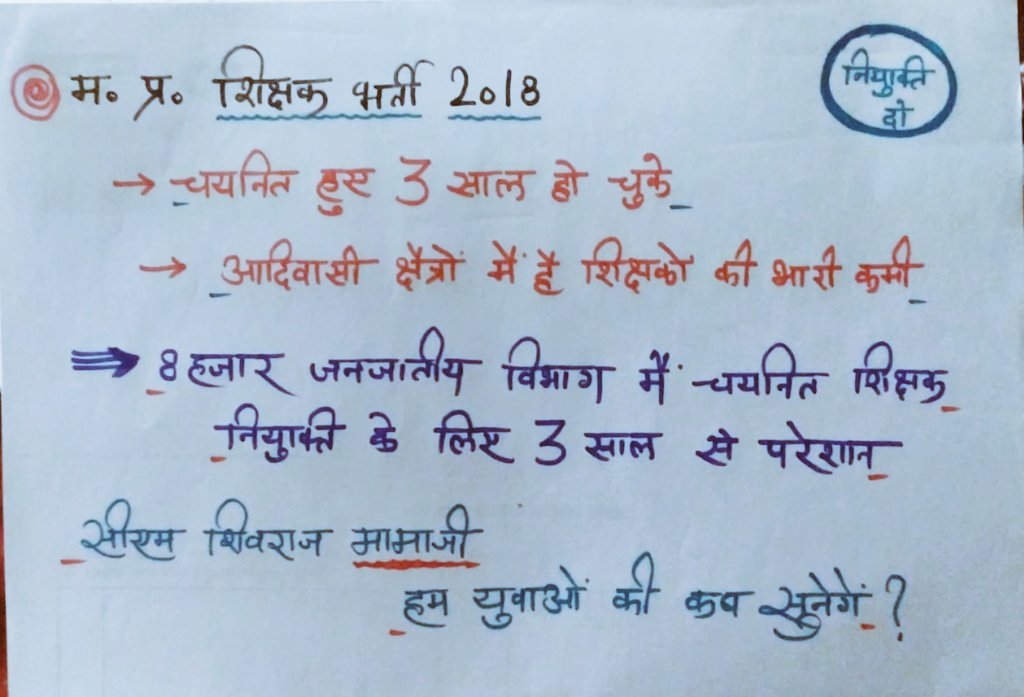 म. प्र. शिक्षक भर्ती 2018
नियुक्ति
दो
→ चयनित हुए 3 साल हो चुके
→ आदिवासी क्षैत्रों में है शिक्षको की भारी कमी
⇒ 8 हजार जनजातीय विभाग में चयनित शिक्षक
नियुक्ति के लिए 3 साल से परेशान
सीएम शिवराज मामाजी
हम युवाओं की कब सुनेगें ?